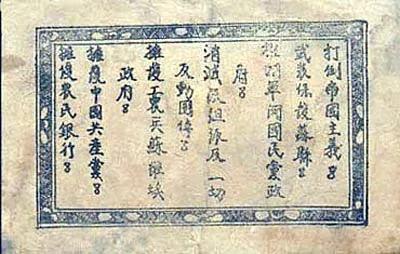 打倒帝國主義！
武裝保護蘇聯！
推翻軍閥國民黨政
府！
消滅改組派及一切
反動團体！
擁護工農兵蘇維埃
政府！
擁護中國共產黨！
擁護農民銀行！